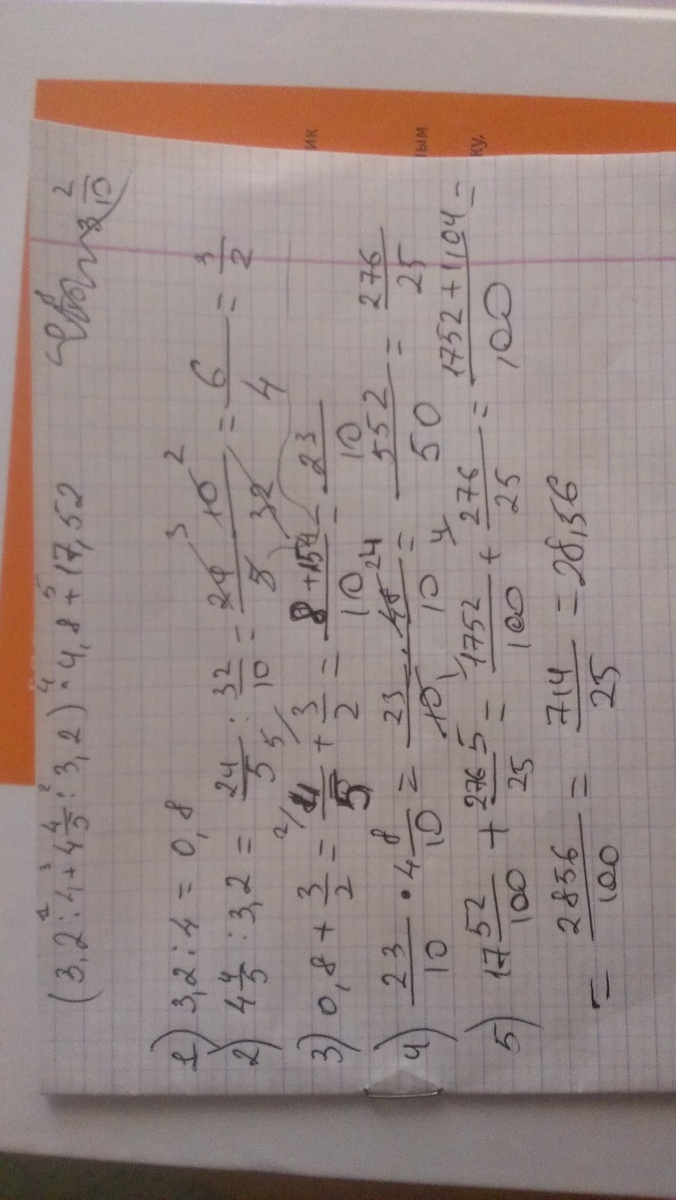 (3,2 : 4 + 4 4/5 : 3,2) · 4,8 + 17,52
1) 3,2 : 4 = 0,8
2) 4 4/5 : 3,2 = 24/5 : 32/10 = 24 10/5 32 = 6/4 = 3/2
3) 0,8 + 3/2 = 4/5 + 3/2 = 8+15/10 = 23/10
4) 23/10 · 4 8/10 = 23 · 48/10 10 = 552/50 = 276/25
5) 17 52/100 + 276/25 = 1752/100 + 276/25 = 1752+1104/100 =
= 2856/100 = 714/25 = 28,56
ик
ным
ку.